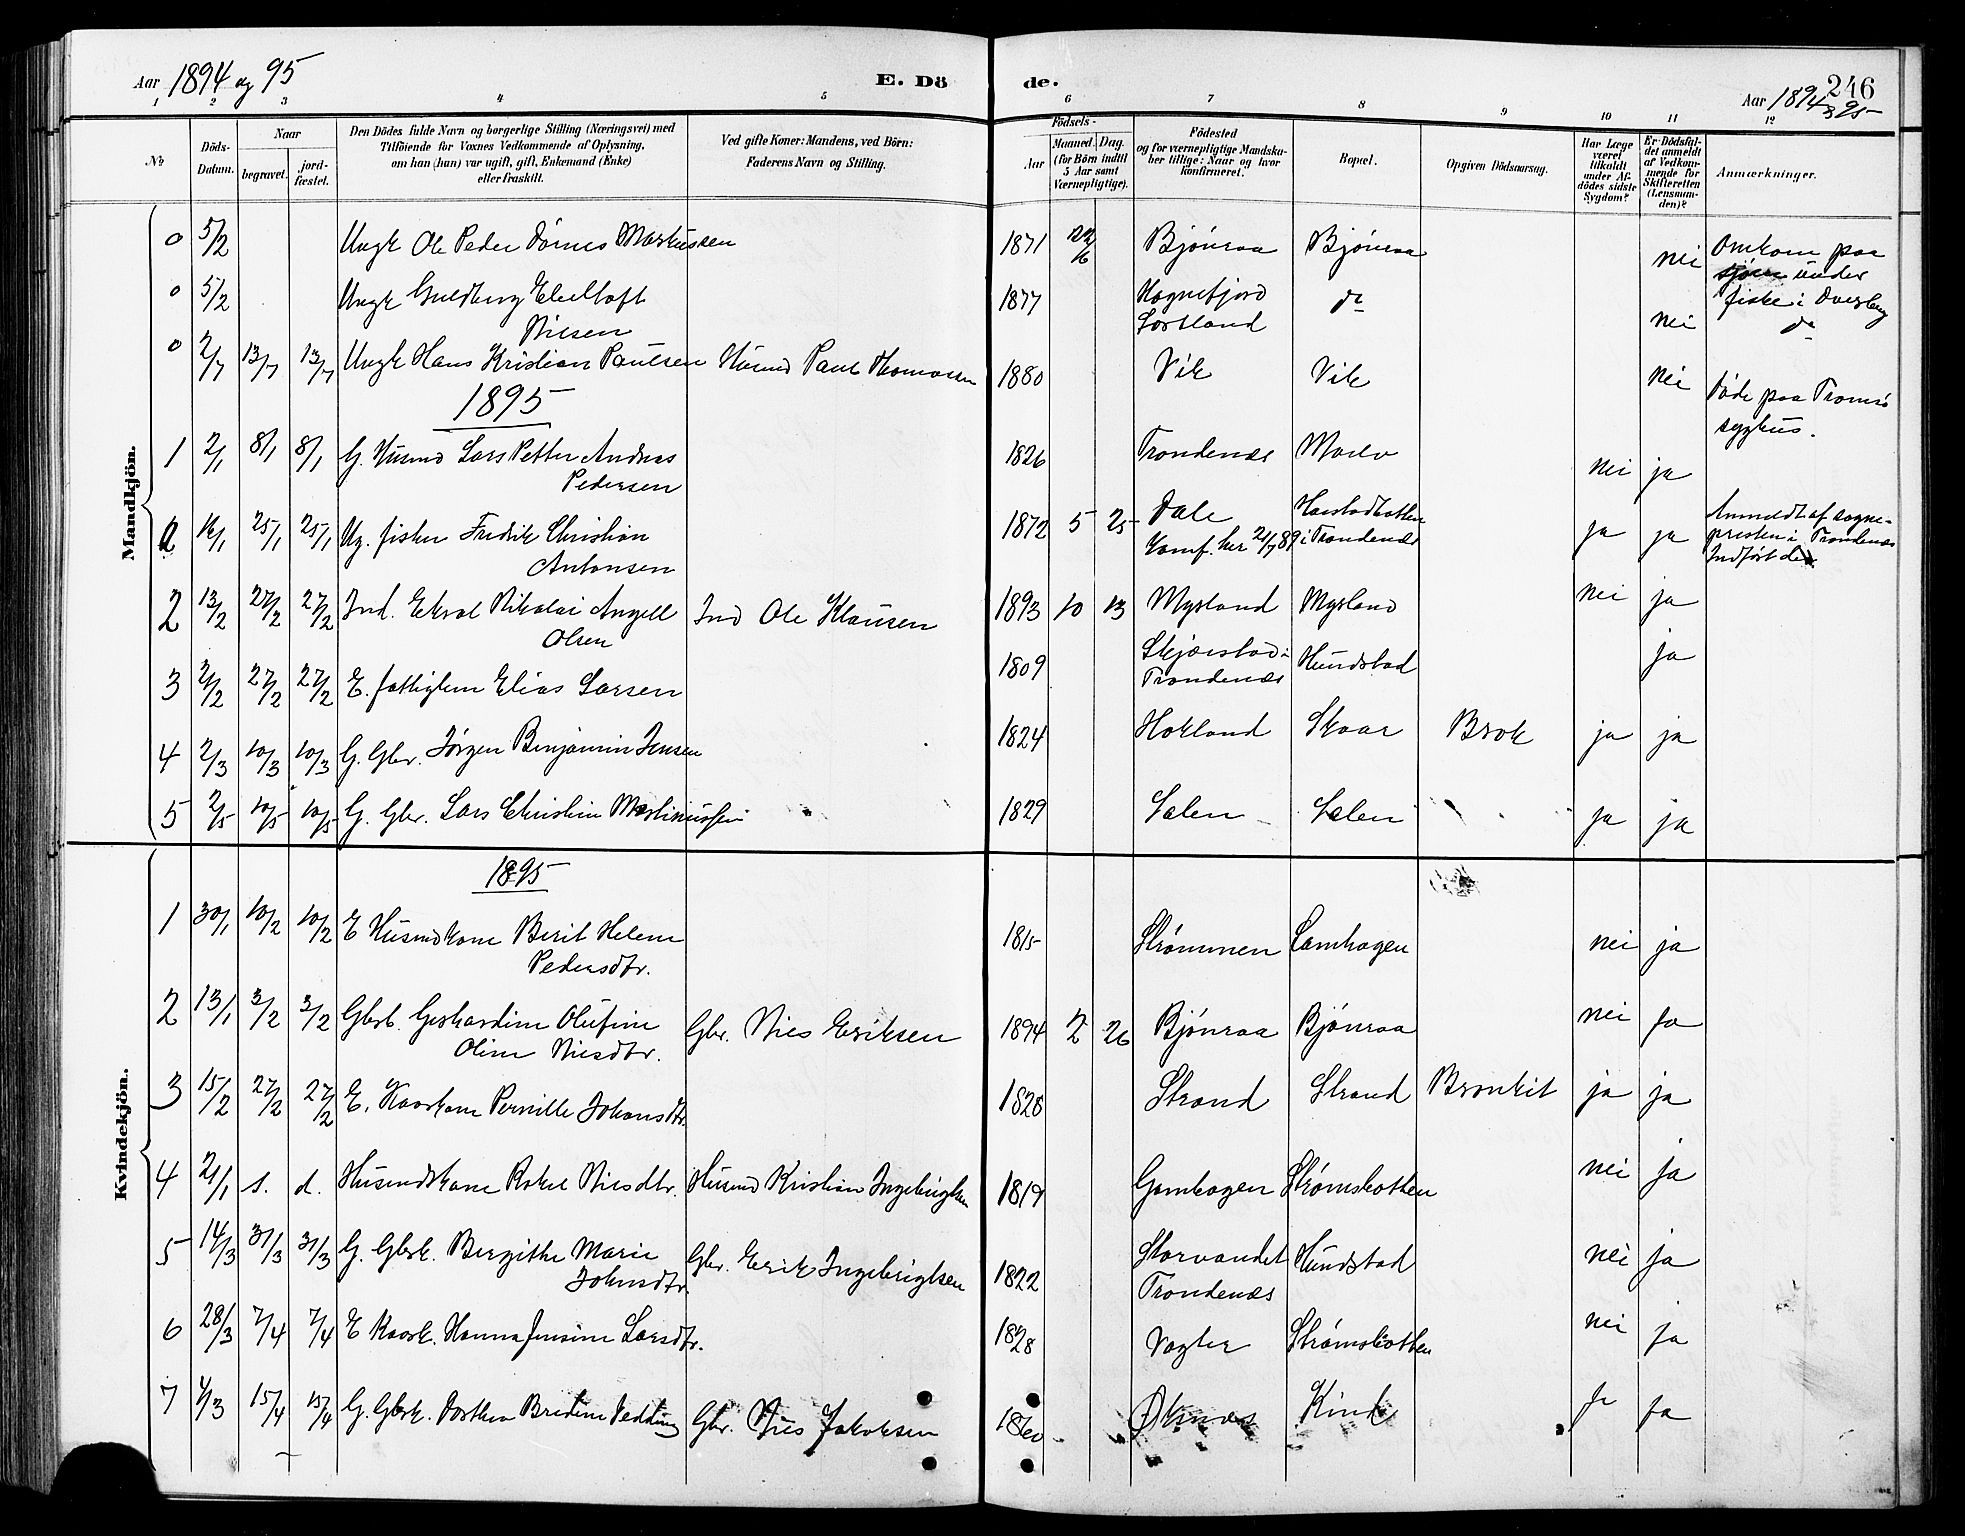 Aar 1894 og 95
E. Dö
de.
246
Aar 1894 & 95
1 2 3 4 5 6 7 8 9 10 11 12
No
Döds-
Datum.
Naar
begravet.
jord-
fæstet.
Den Dödes fulde Navn og borgerlige Stilling (Næringsvei) med
Tilföiende for Voxnes Vedkommende af Oplysning,
om han (hun) var ugift, gift, Enkemand (Enke)
eller fraskilt.
Ved gifte Koner: Mandens, ved Börn:
Faderens Navn og Stilling.
Födsels-
Aar
Maaned.
Dag.
(for Börn indtil
5 Aar samt
Værnepligtige).
Födested
og for værnepligtige Mandska-
ber tillige: Naar og hvor
konfirmeret.
Bopæl.
Opgiven Dödsaarsag.
Har Læge
været
tilkaldt
under Af-
dödes sidste
Sygdom?
Er Dödsfal-
det anmeldt
af Vedkom-
mende for
Skifteretten
(Lensman-
den)?
Anmærkninger.
Mandkjön.
0 5/2 Ungk Ole Peder Dørnes Markussen 1871 22/6 Bjönraa Bjönraa nei Omkom paa
sjøen under
fiske i Overberg
0 5/2 Ungk Guldberg Ebeltoft
Nilsen 1877 Kognefjord
Sortland do nei do
0 2/7 13/7 13/7 Ungk Hans Kristian Paulsen Husmd Paul Thomassen 1880 Vik Vik nei Døde paa Tromsø
sygehus.
1895
1 2/1 8/1 8/1 G. Husmd Lars Petter Andreas
Pedersen 1826 Trondenæs nei ja
2 16/1 25/1 25/1 Ug. fisker Fredrik Christian
Antonsen 1872 5 25 Dale
Konf. her 21/7 89 Harstadbotten
i Trondenæs ja ja Anmeldt af sogne-
presten i Trondenæs
Indført der.
2 13/2 27/2 27/2 Ind. Ekral Nikolai Angell
Olsen Ind Ole Klausen 1893 10 13 Mysland Mysland nei ja
3 2/2 27/2 27/2 E. fattiglem Elias Larsen 1809 Skjærstad i
Trondenæs Hundstad ja
4 2/3 10/3 10/3 G. Gbr. Jørgen Benjamin Jensen 1824 Hokland Skaar Brok ja ja
5 2/5 10/5 10/5 G. Gbr. Lars Christian Martinussen 1829 Salen Salen ja ja
Kvindekjön.
1895
1 30/1 10/2 10/2 E Husmdkone Berit Helene
Pedersdtr. 1815 Strømmen Lamhagen nei ja
2 13/1 3/2 3/2 Gbrb. Gerhardine Olufine
Oline Nilsdtr. Gbr. Nils Eriksen 1894 2 26 Bjönraa Bjönraa nei Ja
3 15/2 27/2 27/2 E. Kaarkone Pernille Johansdtr. 1828 Strand Strand Bronkit ja ja
4 21/1 s. d. Husmdskone Rakel Nilsdtr. Husmd Kristian Ingebrigtsen 1819 Gamhagen Strømsbotten nei ja
5 14/3 31/3 31/3 G. Gbrk. Bergithe Marie
Johnsdtr. Gbr. Erik Ingebrigtsen 1822 Storvandet
Trondenæs Hundstad nei ja
6 28/3 7/4 7/4 E Kaark. Hanna Jensine Larsdtr. 1828 Vagler Strømsbotten nei ja
7 4/3 15/4 15/4 G. Gbrk. Dorthea Bredine Vedding Gbr. Nils Jakobsen 1860 Øksnæs Kind ja ja